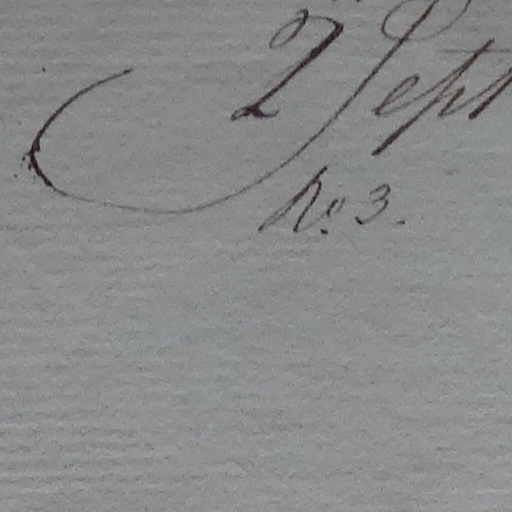 2 Sept
No. 3.